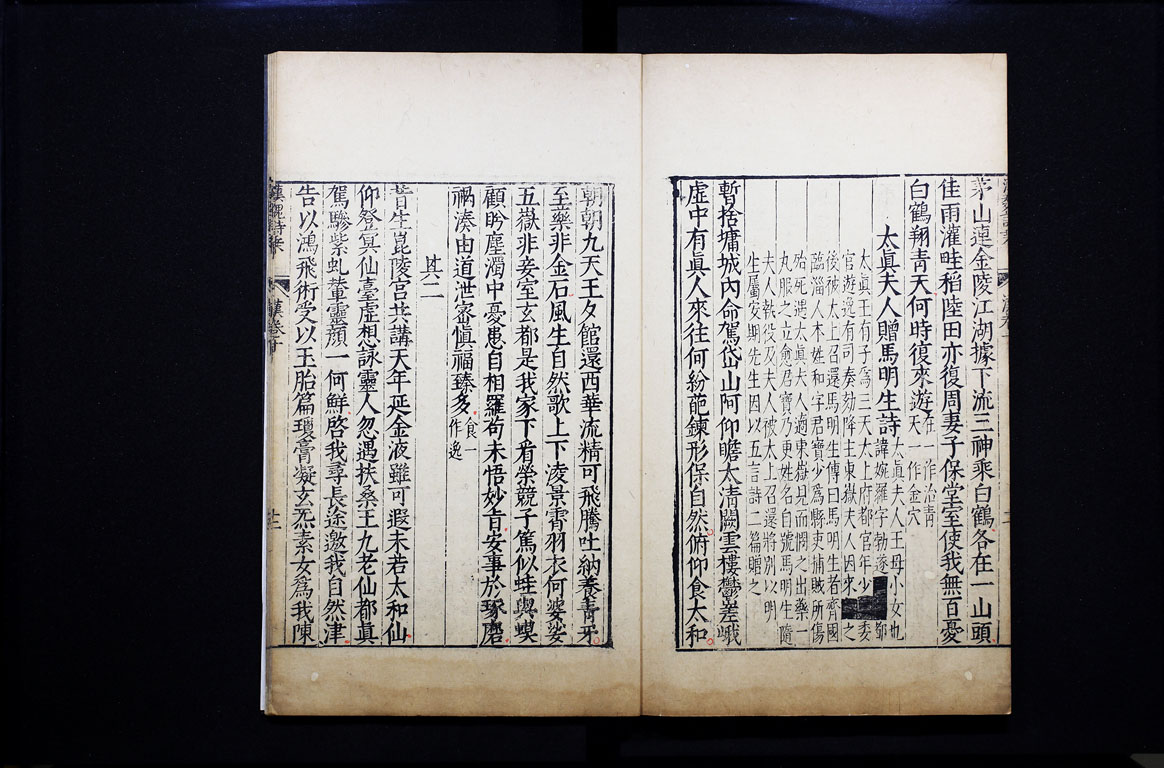 茅山連金陵江湖據下流三神乘白鶴各在一山頭
佳雨灌畦稻陸田亦復周妻子保堂室使我無百憂
白鶴翔青天何時復來遊在一作治青
天一作金穴
太眞夫人贈馬明生詩太眞夫人王母小女也
諱婉羅字勃遂
太眞王有子爲三天太上府都官年少委
官遊逸有司奏劾降主東嶽夫人因來之
後被太上召還馬明生傳曰馬明生者齊國
臨淄人本姓和字君寶少爲縣吏捕賊所傷
殆死遇太眞夫人適東嶽見而憫之出藥一
丸服之立愈君寶乃更姓名自號馬明生隨
夫人執役及夫人被太上召還將別以明
生屬安期先生因以五言詩二篇贈之
暫捨墉城內命駕岱山阿仰瞻太清闕雲樓鬱差峨
虛中有眞人來往何紛葩鍊形保自然俯仰食太和
朝朝九天王夕館還西華流精可飛騰吐納養青牙
至藥非金石風生自然歌上下淩景霄羽衣何婆娑
五嶽非妾室玄都是我家下看榮競子篤似蛙與蟆
顧眄塵濁中憂患自相羅苟未悟妙旨安事於琢磨
禍湊由道泄密愼福臻多食一
作逸
其二
昔生崑陵宮共講天年延金液雖可遐未若太和仙
仰登冥仙臺虛想詠靈人忽遇扶桑王九老仙都眞
駕驂紫虬輦靈顏一何鮮啓我尋長途邀我自然津
告以鴻飛術受以玉胎篇瓊膏凝玄炁素女爲我陳